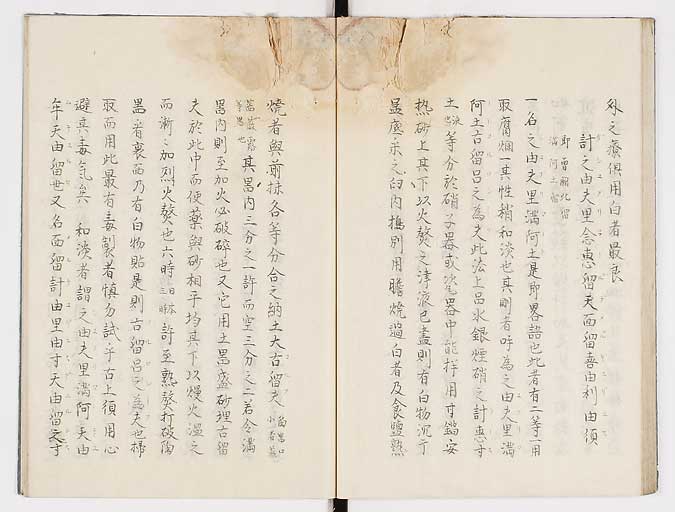 外之療俱用白者最良
計之由夫里念惠留天面留喜由利由須
即曾爾北留
滿阿二留
一名之由夫里滿阿土是即畧語也此者有二等一用
取腐爛一其性稍和淡也其剛者呼為之由夫里滿
阿土古留呂之為夫此法上品水銀煙硝之計惠寸
土等分於硝子器或瓷器中能拌用寸鎦安
热砂上其下以火熬之津液已盡則有白物沉于
器底示之臼內擣別用膽燒過白者及食鹽熟
燒者與前抹各等分合之納土大古留夫
其器內三分之一許而空三分之二若令滿
器內則至加火必破碎也又它用土器盛砂埋古留
夫於此中而使藥與砂相平均其下以熳火溫之
而漸々加烈火熬也六時許至熟熬打破陶
器看裏面乃有白物貼是則古留呂之為夫也掃
取而用此最有毒製者慎勿試于舌上須用心
避其毒氣矣 和淡者謂之由夫里滿阿天由
年天由留世又名面留計由里由寸天由留之寸